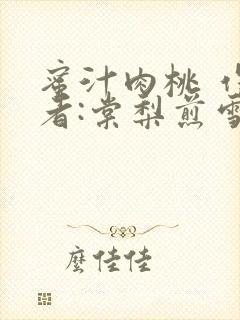 蜜汁肉桃 作
者:棠梨煎雪
麼佳佳